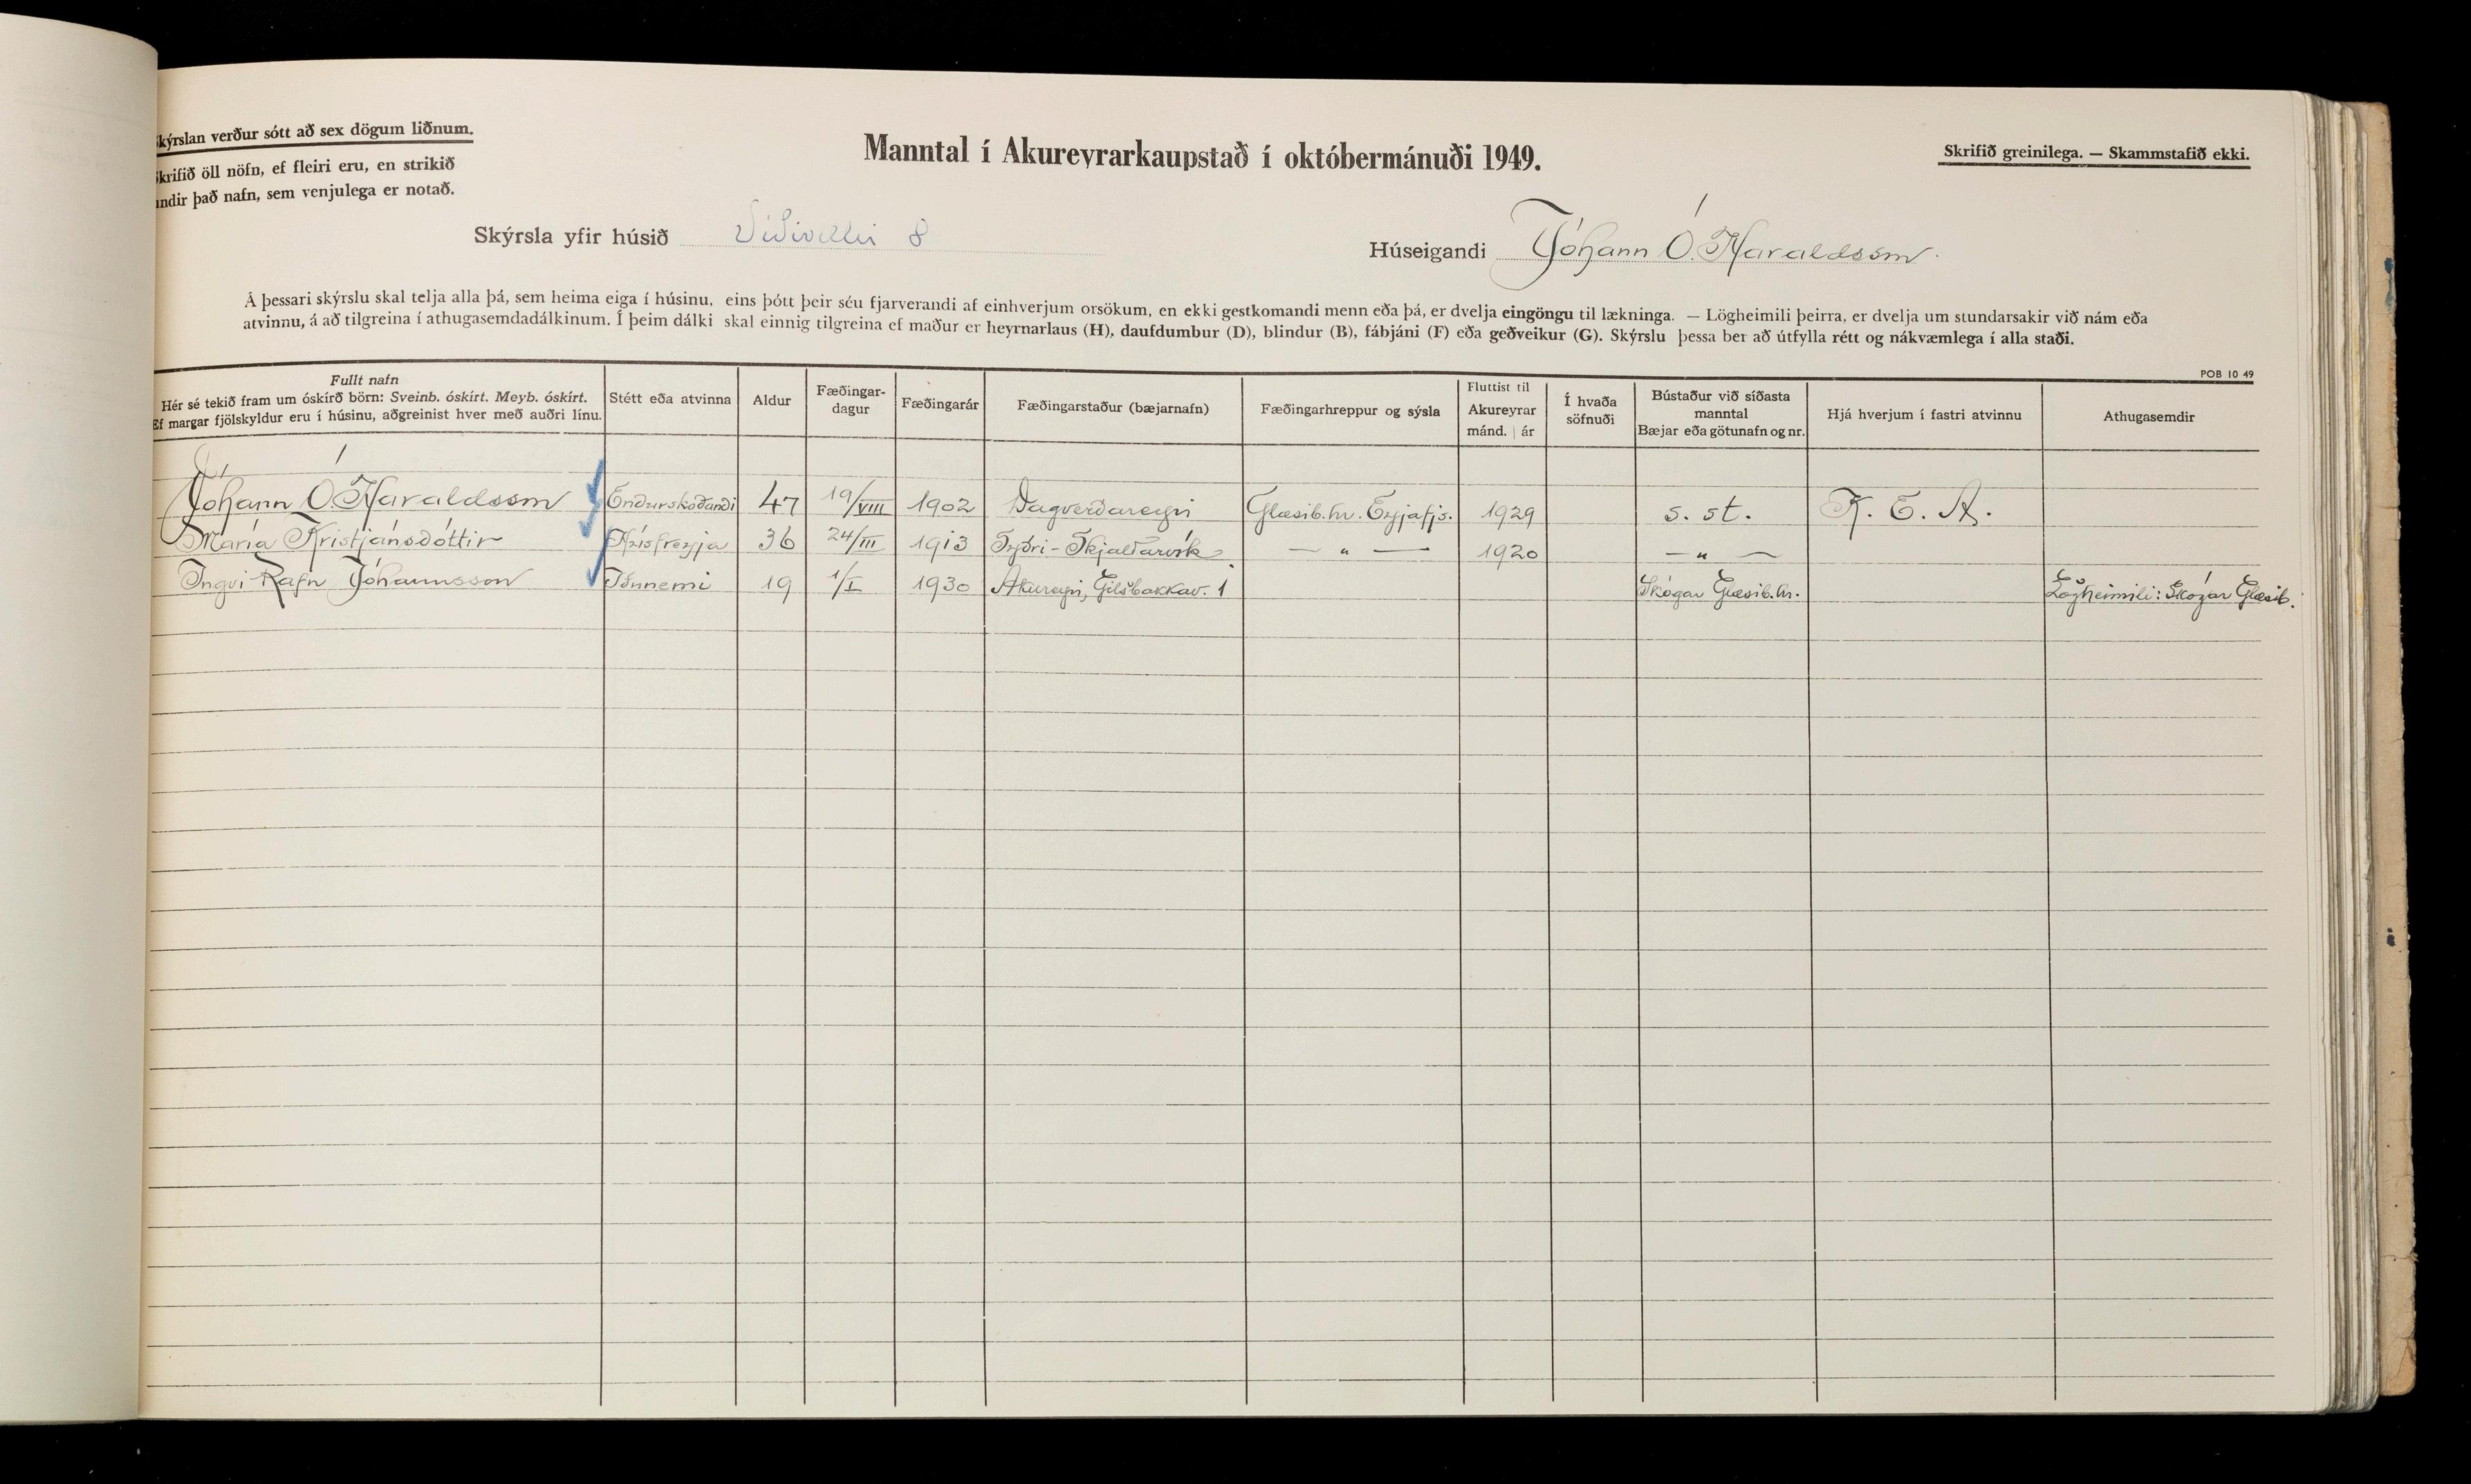 kýrslan verður sótt að sex dögum liðnum.
krifið öll nöfn, ef fleiri eru, en strikið
undir það nafn, sem venjulega er notað.
Manntal í Akureyrarkaupstað í októbermánuði 1949.
Skrifið greinilega. — Skammstafið ekki.
Skýrsla yfir húsið Víðivellir 8
Húseigandi Jóhann Ó. Haraldsson.
Á þessari skýrslu skal telja alla þá, sem heima eiga í húsinu, eins þótt þeir séu fjarverandi af einhverjum orsökum, en ekki gestkomandi menn eða þá, er dvelja eingöngu til lækninga. — Lögheimili þeirra, er dvelja um stundarsakir við nám eða
atvinnu, á að tilgreina í athugasemdadálkinum. Í þeim dálki skal einnig tilgreina ef maður er heyrnarlaus (H), daufdumbur (D), blindur (B), fábjáni (F) eða geðveikur (G). Skýrslu þessa ber að útfylla rétt og nákvæmlega í alla staði.
POB 10 49
Fullt nafn
Hér sé tekið fram um óskírð börn: Sveinb. óskírt. Meyb. óskírt.
Ef margar fjölskyldur eru í húsinu, aðgreinist hver með auðri línu.
Stétt eða atvinna
Aldur
Fæðingar-
dagur
Fæðingarár
Fæðingarstaður (bæjarnafn)
Fæðingarhreppur og sýsla
Fluttist til
Akureyrar
mánd. | ár
Í hvaða
söfnuði
Bústaður við síðasta
manntal
Bæjar eða götunafn og nr.
Hjá hverjum í fastri atvinnu
Athugasemdir
Jóhann Ó. Haraldsson Endurskoðandi 47 19/VIII 1902 Dagverðareyri Glæsib.hr. Eyjafjs. 1929 s. st. K. E. A.
María Kristjánsdóttir Húsfreyja 36 24/III 1913 Syðri-Skjaldarvík — " — 1920 — " —
Ingvi Rafn Jóhannsson Iðnnemi 19 1/I 1930 Akureyri, Gilsbakkav. 1 Skógar Glæsib.hr. Lögheimili: Skógar Glæsib.